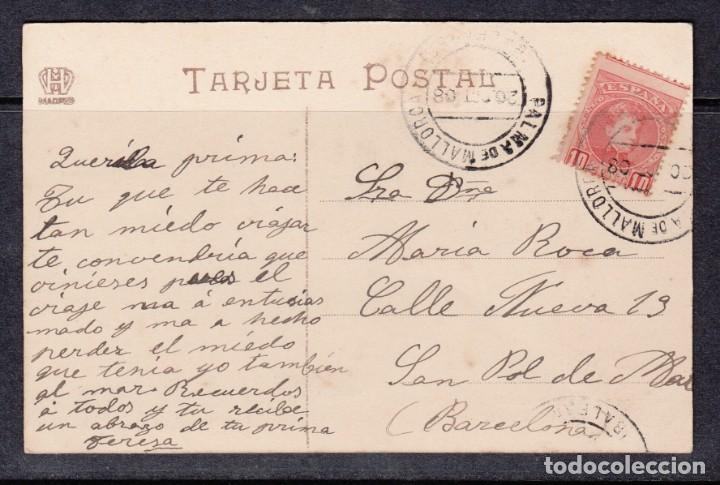 MADRID
TARJETA POSTAL
PALMA DE MALLORCA
26 OCT 08
ESPAÑA
10 10
PALMA DE MALLORCA
08
Querida prima:
Tu que te hace
tan miedo viajar
te convendría que
vinieses pues el
viaje ma á entusias
mado y ma a hecho
perdez el miedo
que tenia yo también
al mar. Recuerdos
á todos y tu recibe
un abrazo de tu prima
Teresa
Sra Dna
María Roca
Calle Nueva 19
San Pol de Mar
(Barcelona)
BALEA
todocoleccion.net